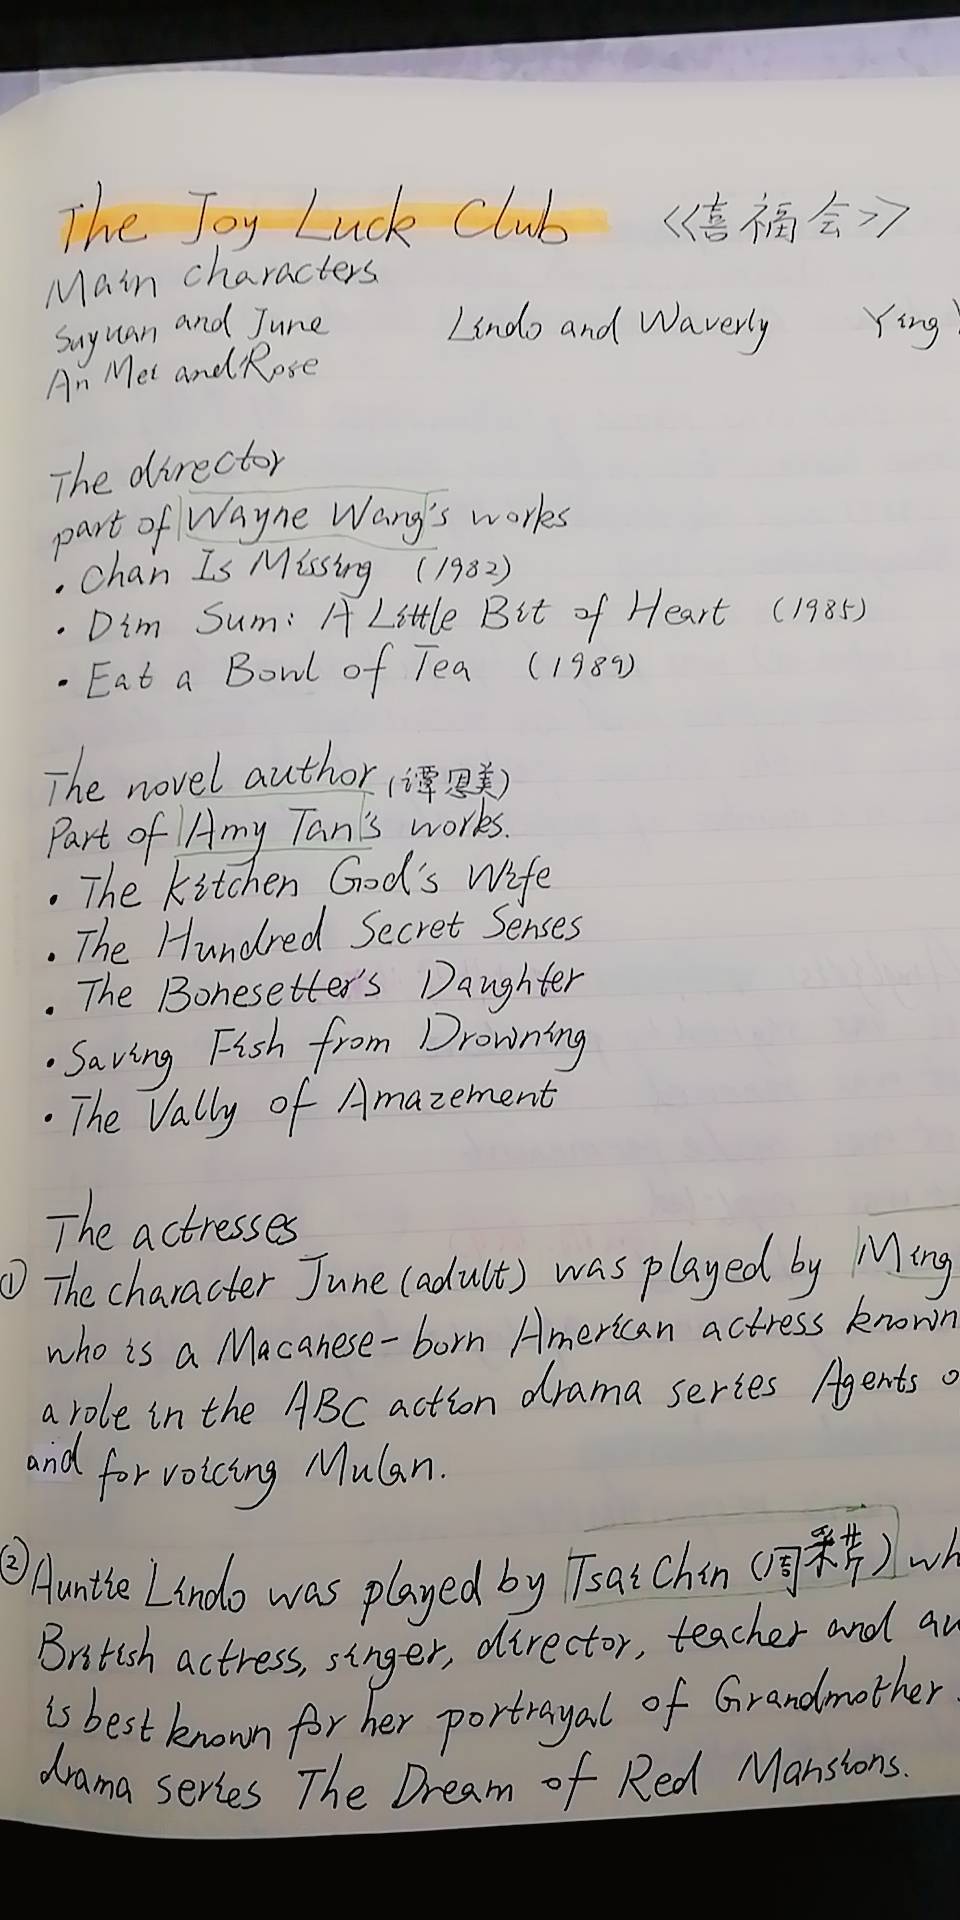 The Joy Luck Club 《喜福会》
Main characters
Suyuan and June Lindo and Waverly Ying
An Mei and Rose
The director
part of Wayne Wang's works
• Chan Is Missing (1982)
• Dim Sum: A Little Bit of Heart (1985)
• Eat a Bowl of Tea (1989)
The novel author (谭恩美)
Part of Amy Tan's works.
• The Kitchen God's Wife
• The Hundred Secret Senses
• The Bonesetter's Daughter
• Saving Fish from Drowning
• The Vally of Amazement
The actresses
① The character June (adult) was played by Ming
who is a Macanese-born American actress known
a role in the ABC action drama series Agents o
and for voicing Mulan.
② Auntie Lindo was played by Tsai Chin (周采芹) wh
British actress, singer, director, teacher and au
is best known for her portrayal of Grandmother
drama series The Dream of Red Mansions.